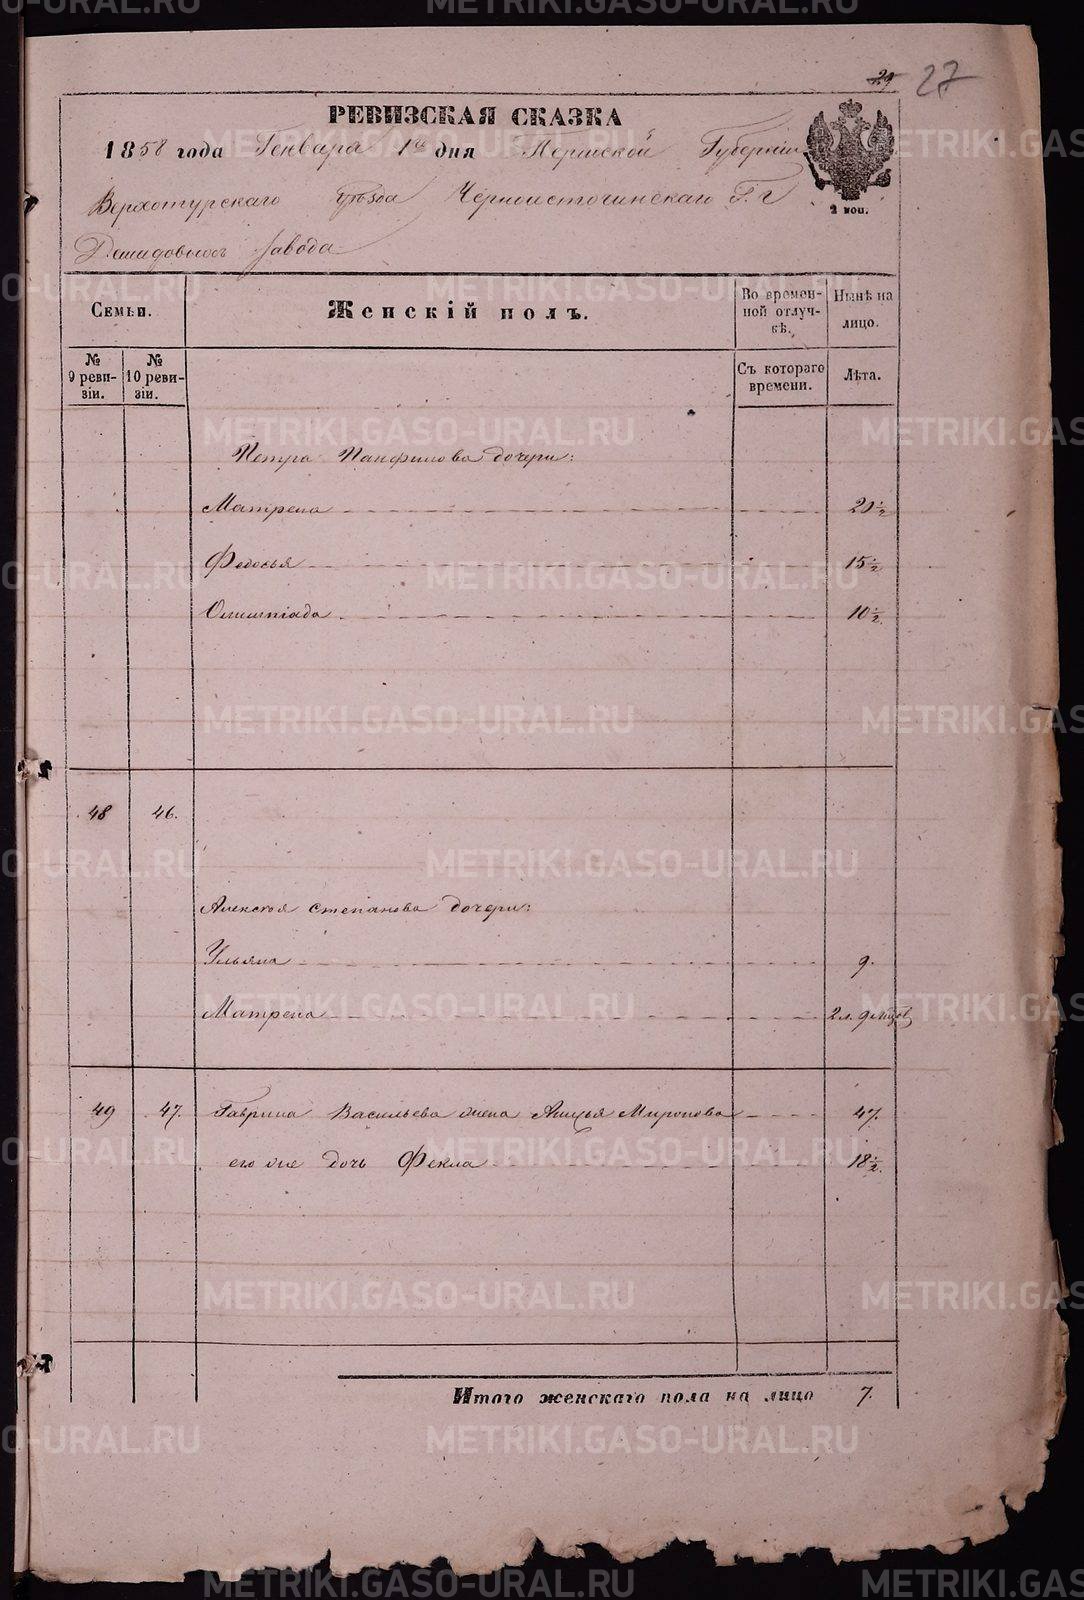 29 27
РЕВИЗСКАЯ СКАЗКА
1858 года Генваря 1го дня Пермской Губерніи
2 коп.
Верхотурскаго уѣзда Черноисточинскаго Г.г
Демидовыхъ завода
Семьи.
Женскій полъ.
Во времен-
ной отлуч-
кѣ.
Нынѣ на
лицо.
№
9 реви-
зіи.
№
10 реви-
зіи.
Съ котораго
времени.
Лѣта.
Петра Панфилова дочери:
Матрена 20 1/2
Федосья 15 1/2
Олимпіада 10 1/2.
48 46.
Алексея Степанова дочери:
Ульяна 9.
Матрена 2 л. 9 мѣсов
49 47. Гаврила Васильева жена Миронова 47.
его же дочь Фекла 18 1/2.
Итого женскаго пола на лицо 7.
METRIKI.GASO-URAL.RU